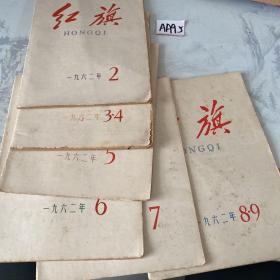 红旗
HONGQI
APA3
一九六二年 2
一九六二年 3·4
一九六二年 5
一九六二年 6
7
旗
NGQI
九六二年 8·9